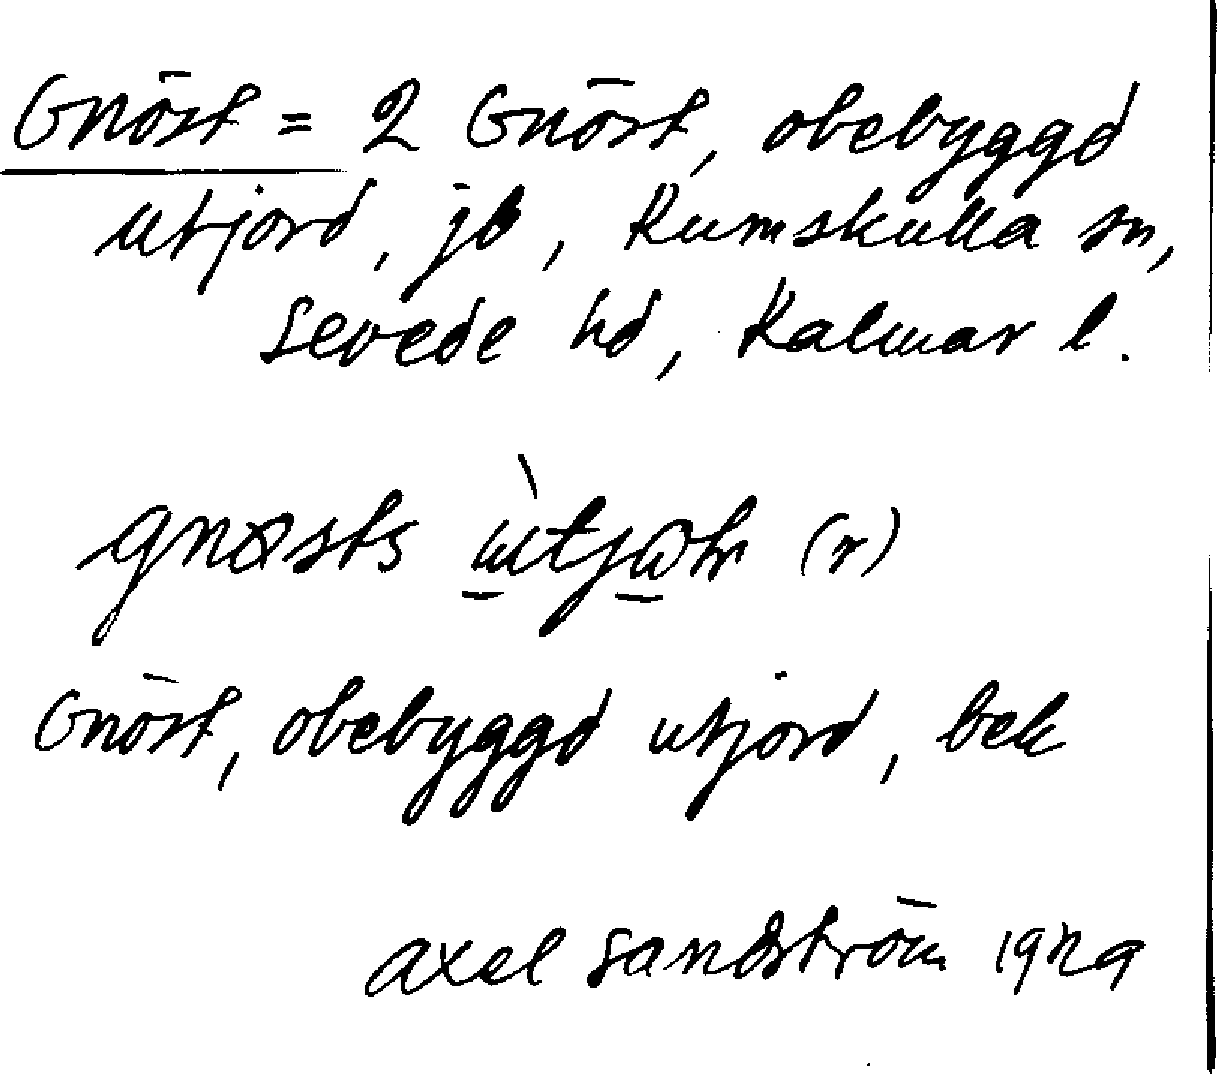 Gnöst = 2 Gnöst, obebyggd
utjord, jb, Rumskulla sn,
Sevede hd, Kalmar l.
(r)
Gnöst, obebyggd utjord, bek
Axel Sandström 1929